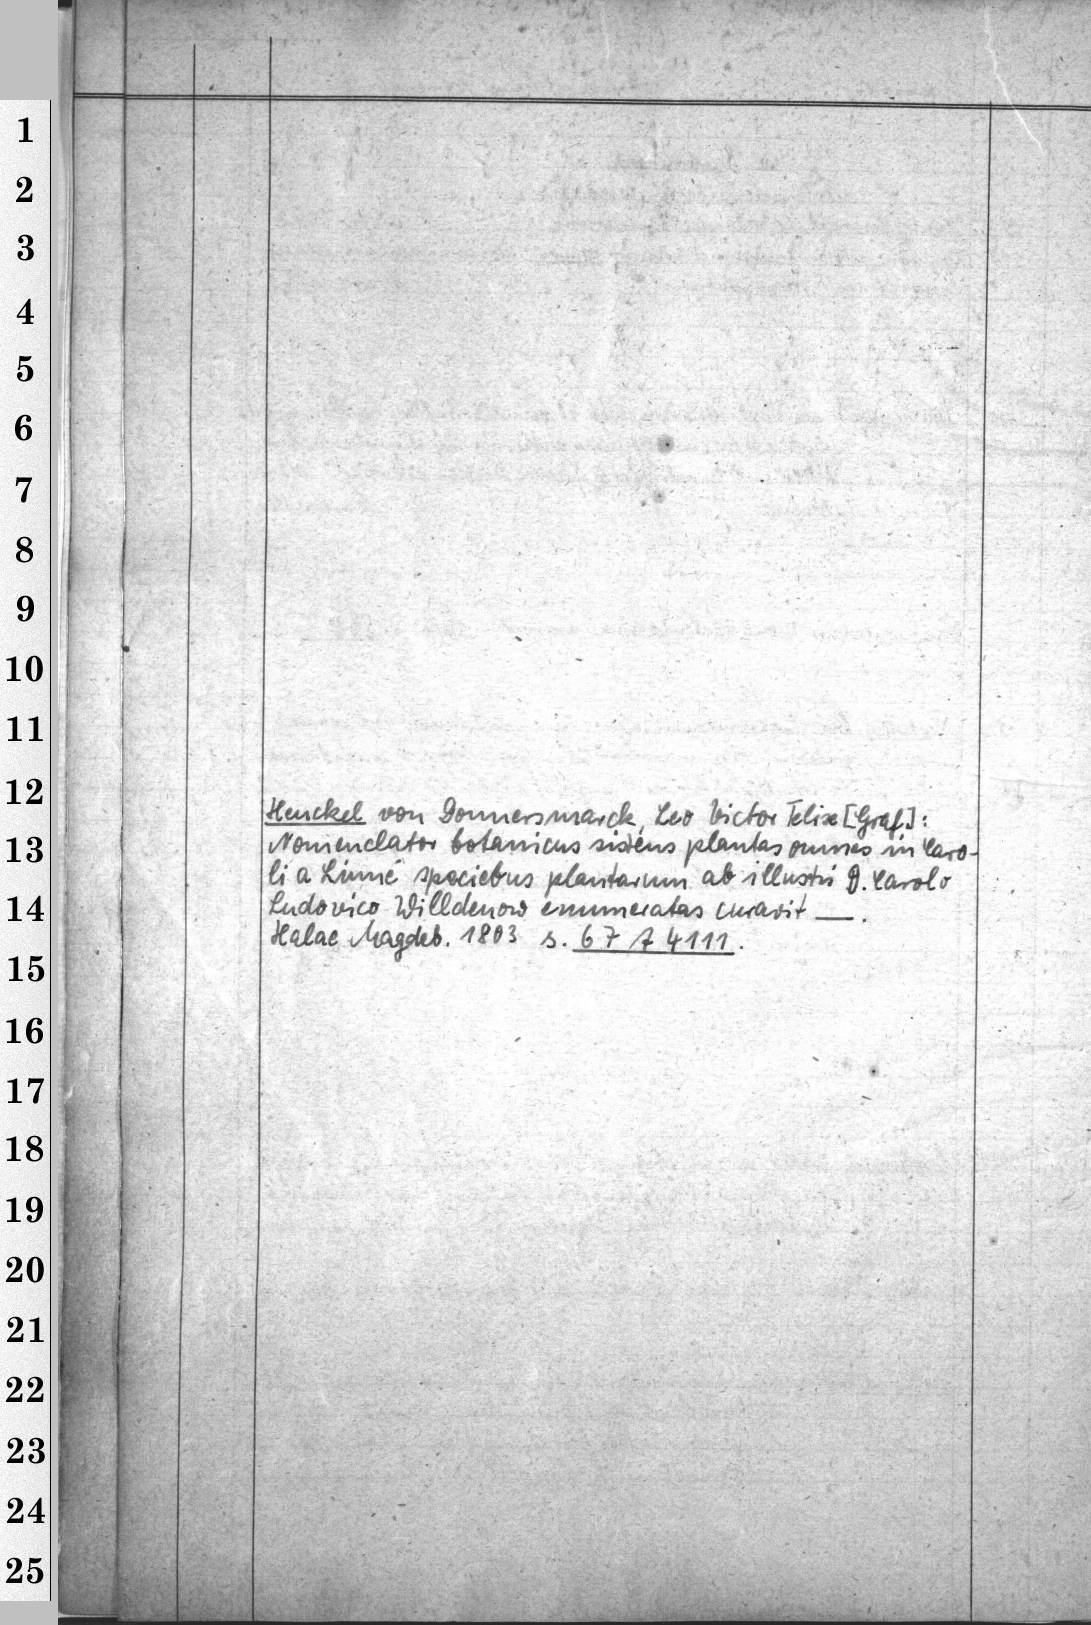 1
2
3
4
5
6
7
8
9
10
11
12
Henckel von Donnersmarck, Leo Victor Felix [Graf]:
13
Nomenclator botanicus sistens plantas omnes in Caro-
li a Linné speciebus plantarum ab illustri D. Carolo
14
Ludovico Willdenow enumeratas curavit —.
Halae Magdeb. 1803 s. 67 A 4111.
15
16
17
18
19
20
21
22
23
24
25